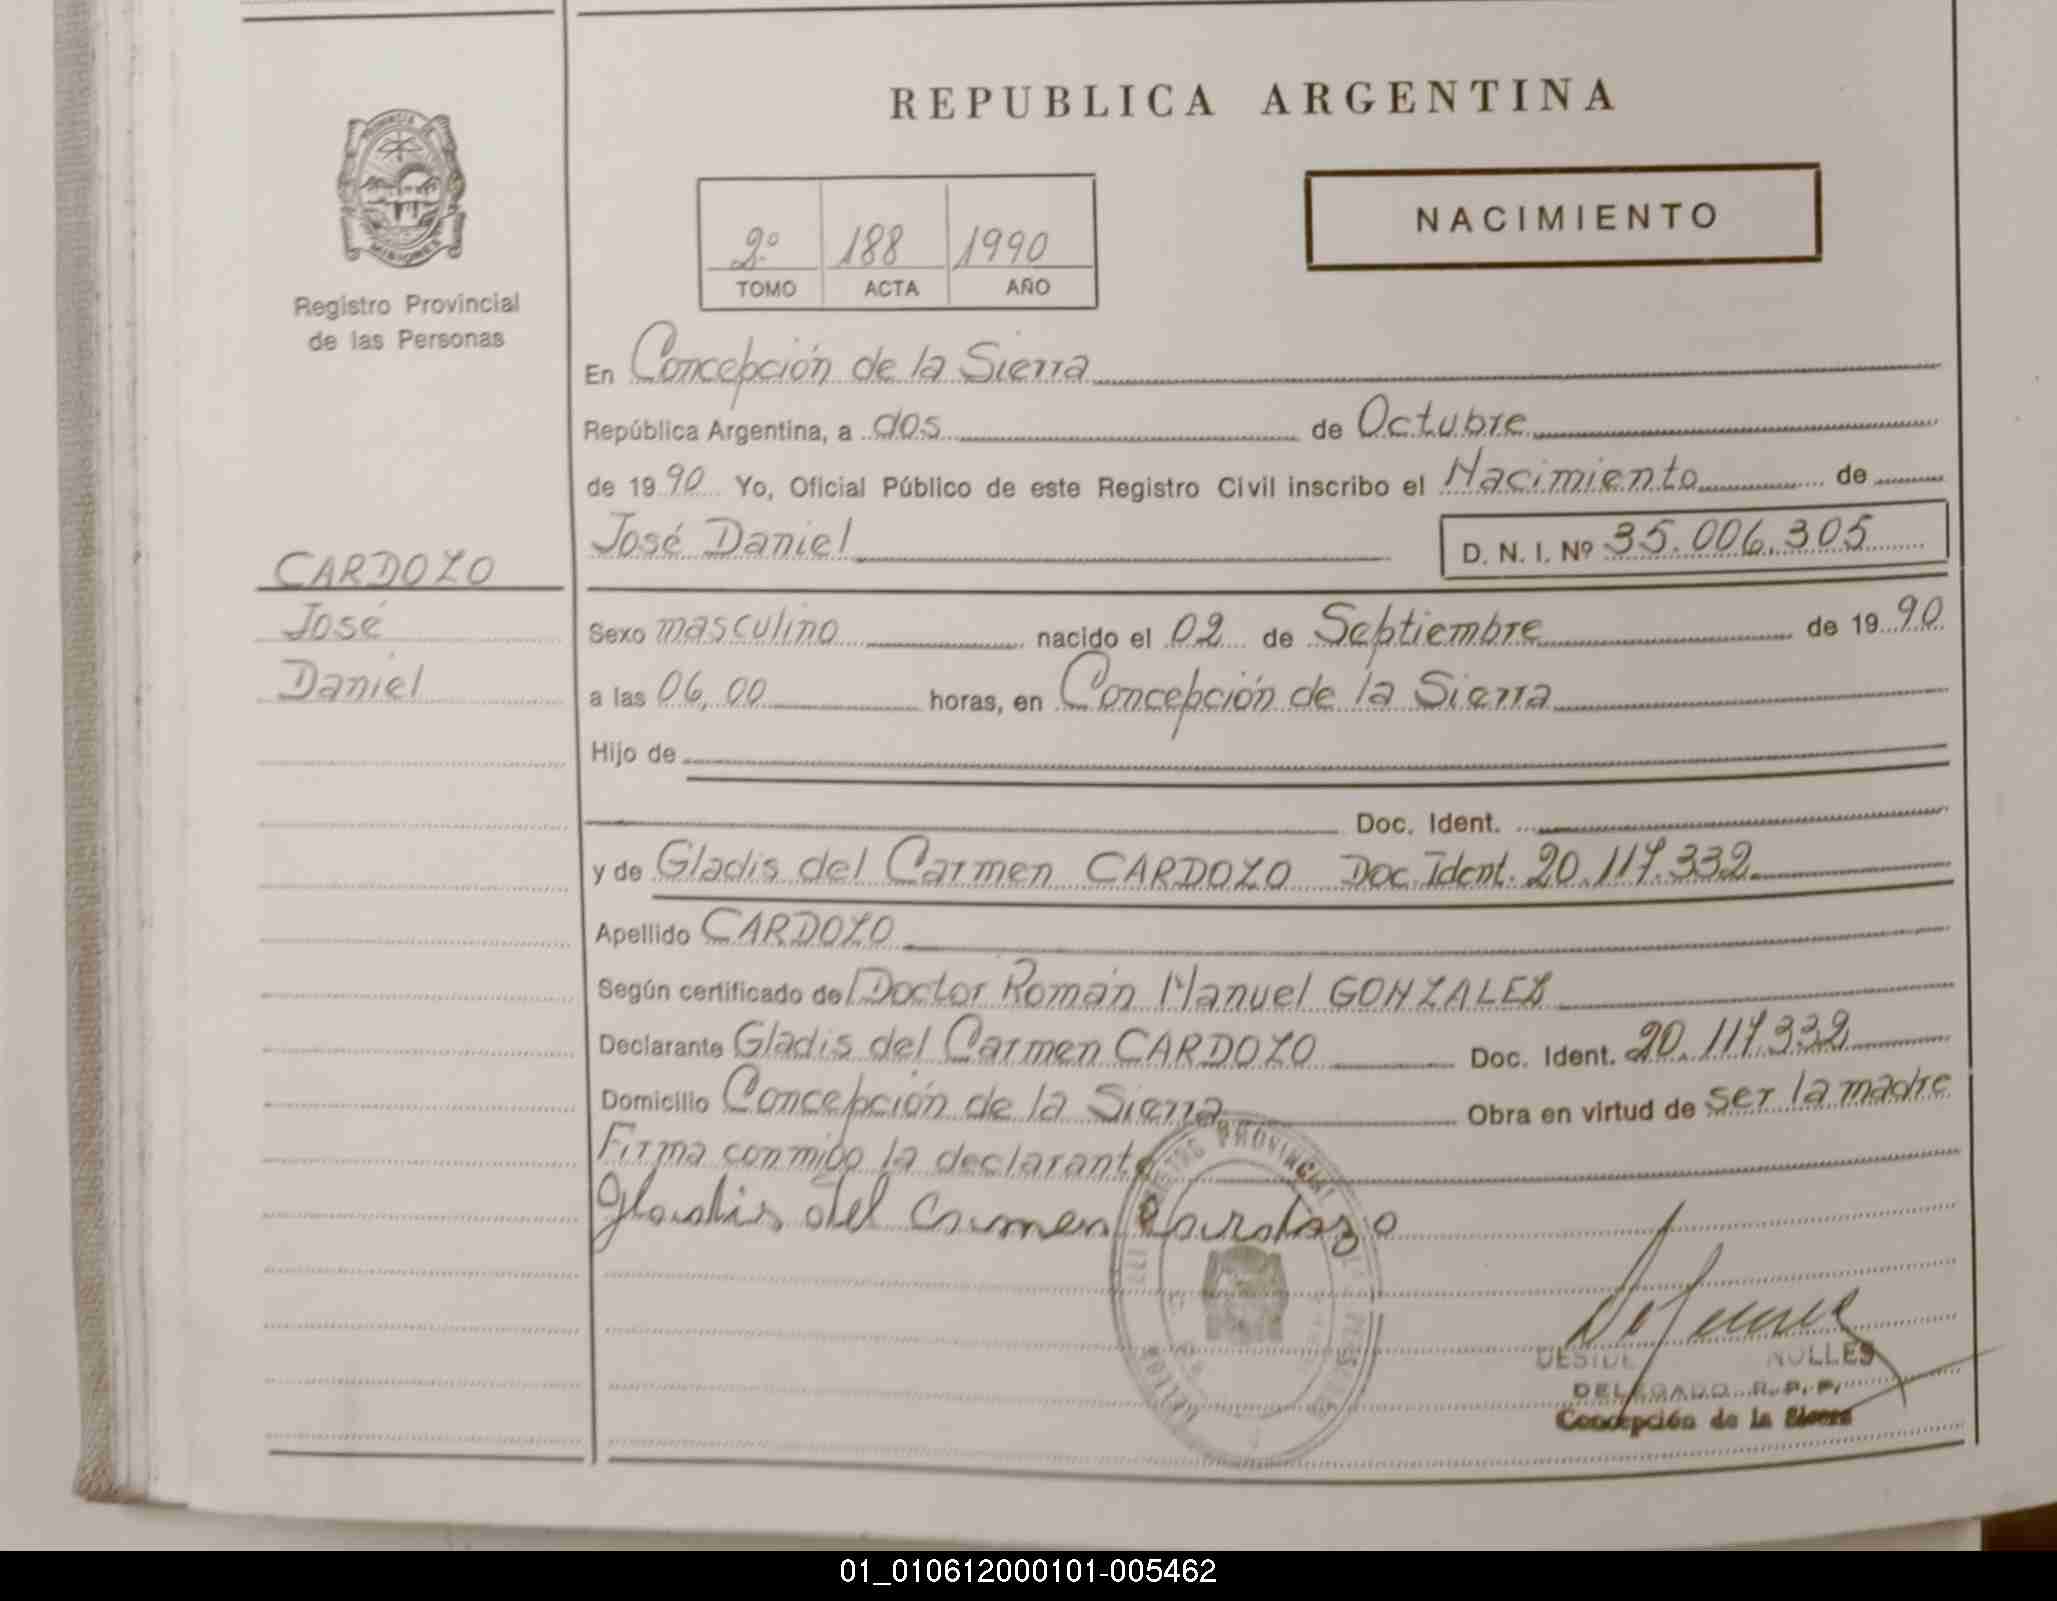 REPUBLICA ARGENTINA
PROVINCIA DE
MISIONES
Registro Provincial
de las Personas
NACIMIENTO
2º 188 1990
TOMO ACTA AÑO
En Concepción de la Sierra
República Argentina, a dos de Octubre
de 1990 Yo, Oficial Público de este Registro Civil inscribo el Nacimiento de
José Daniel D. N. I. Nº 35.006.305
CARDOZO
José
Daniel
Sexo masculino nacido el 02 de Septiembre de 1990
a las 06,00 horas, en Concepción de la Sierra
Hijo de
Doc. Ident.
y de Gladis del Carmen CARDOZO Doc. Ident. 20.117.332
Apellido CARDOZO
Según certificado del Doctor Román Manuel GONZALEZ
Declarante Gladis del Carmen CARDOZO Doc. Ident. 20.117.332
Domicilio Concepción de la Sierra Obra en virtud de ser la madre
Firma conmigo la declarante
Gladis del Carmen Cardozo
REGISTRO PROVINCIAL
DELEGADO R. P. P.
Concepción de la Sierra
01_010612000101-005462